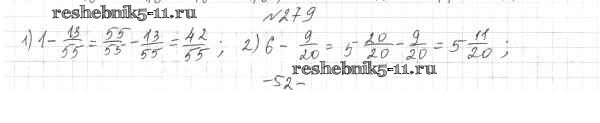 reshebnik5-11.ru №279
1) 1 - 13/55 = 55/55 - 13/55 = 42/55 ; 2) 6 - 9/20 = 5 20/20 - 9/20 = 5 11/20 ;
reshebnik5-11.ru
-52-